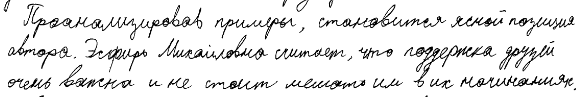 Проанализировав примеры, становится ясной позиция
автора. Эсфирь Михайловна считает, что поддержка друзей
очень важна и не стоит мешать им в их начинаниях.